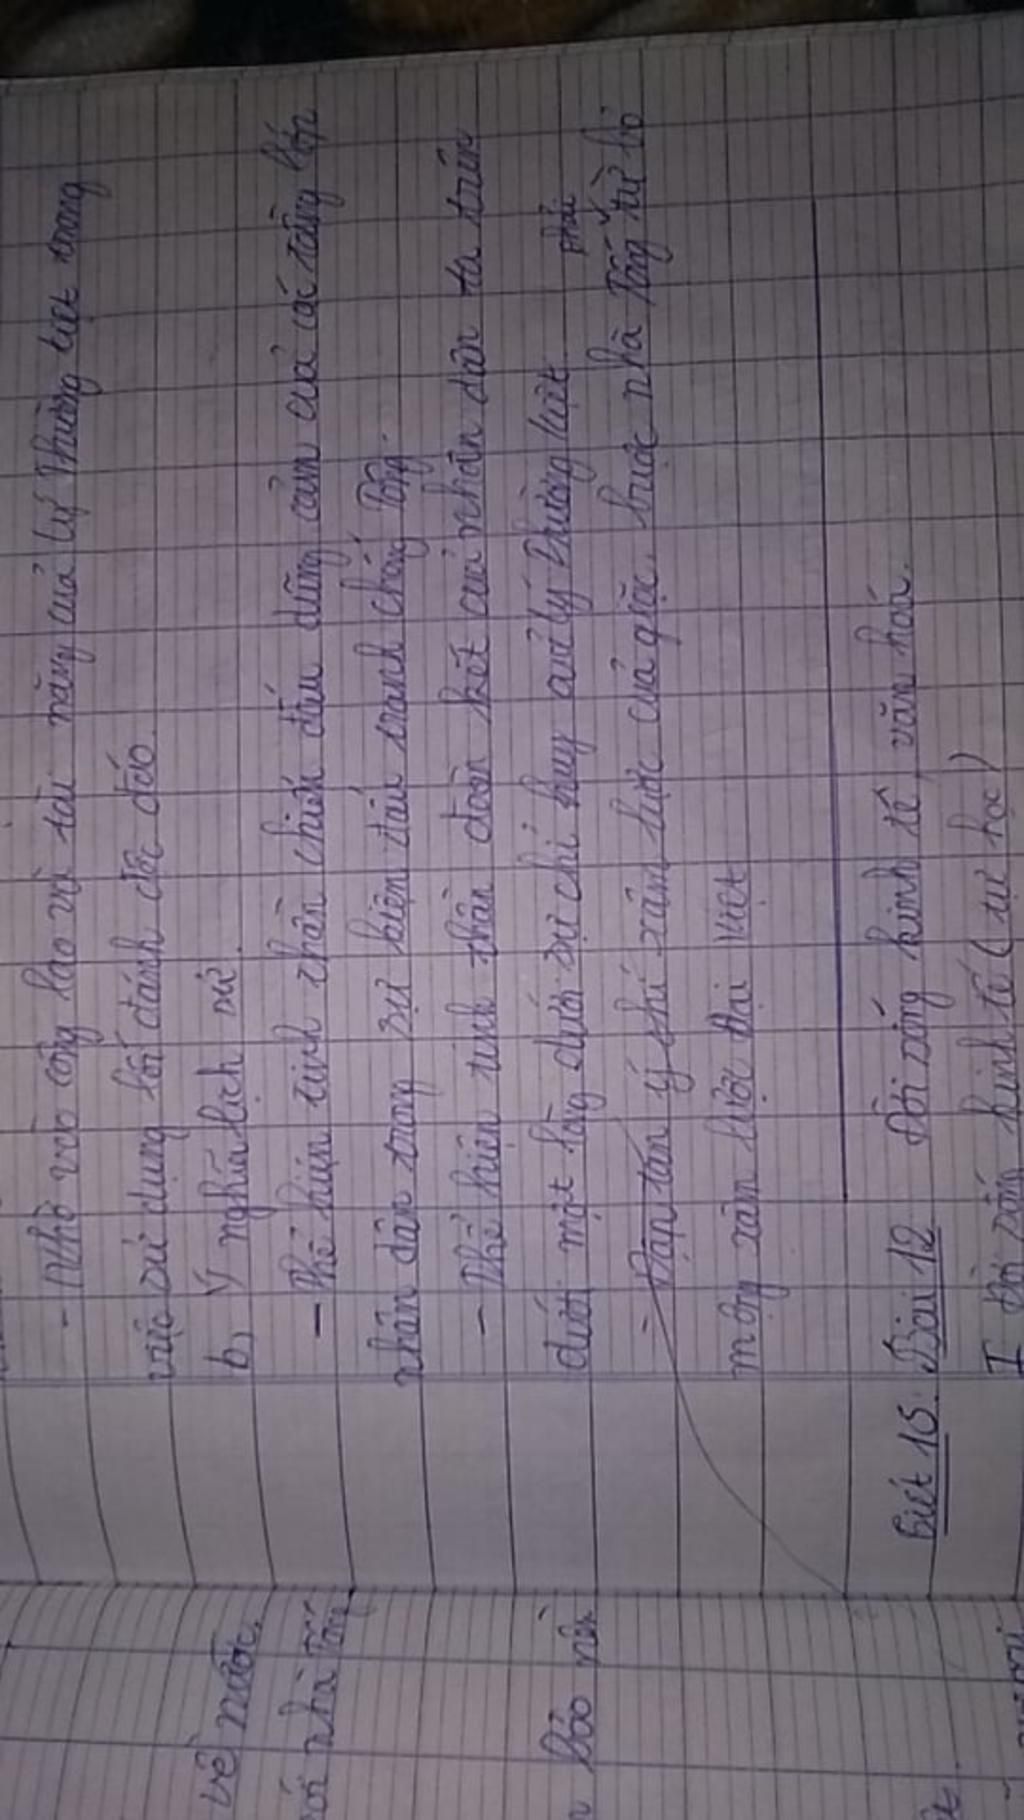 - Nhờ vào công lao và tài năng của Lý Thường Kiệt trong
việc sử dụng lối đánh độc đáo.
b, Ý nghĩa lịch sử.
- Thể hiện tinh thần chiến đấu dũng cảm của các tầng lớp
nhân dân trong sự kiện đấu tranh chống Tống.
- Thể hiện tinh thần đoàn kết của nhân dân ta trên
dưới một lòng dưới sự chỉ huy của Lý Thường Kiệt
- Đập tan ý chí xâm lược của giặc, buộc nhà Tống phải từ bỏ
mộng xâm lược Đại Việt
Tiết 15: Bài 12 Đời sống kinh tế, văn hoá.
I Đời sống kinh tế (tự học)
về nước,
nhà Tống